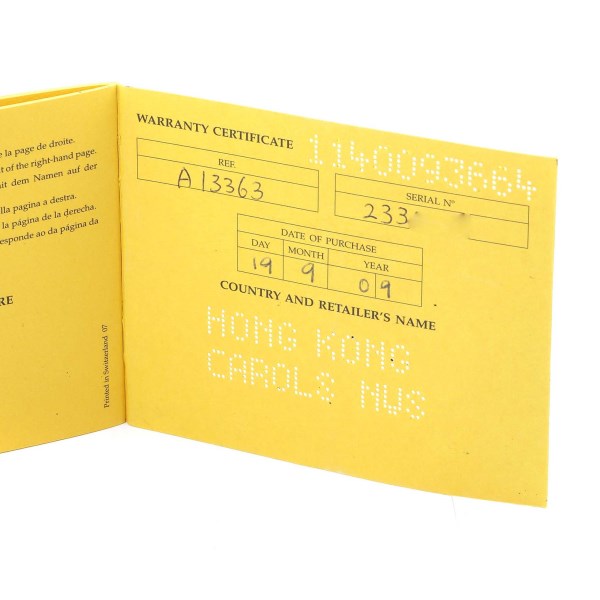 e la page de droite.
t of the right-hand page.
it dem Namen auf der
lla pagina a destra.
la página de la derecha.
esponde ao da página da
RE
Printed in Switzerland 07
WARRANTY CERTIFICATE
1140093664
REF.
A13363
SERIAL Nº
233
DATE OF PURCHASE
DAY MONTH YEAR
19 9 09
COUNTRY AND RETAILER'S NAME
HONG KONG
CAROLS NWS